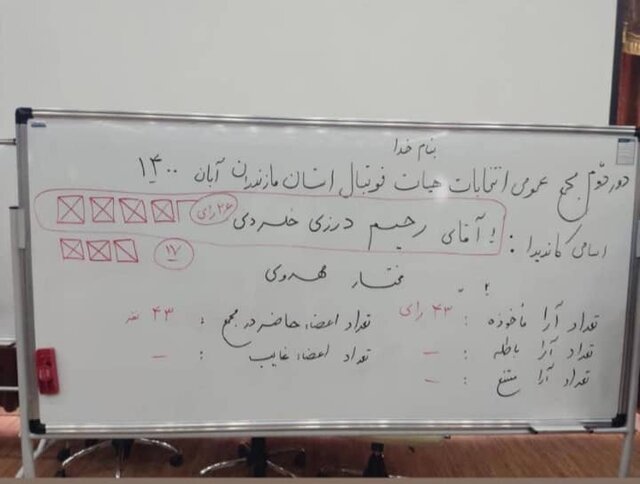 بنام خدا
دور دوّم مجمع عمومی انتخابات هیات فوتبال استان مازندران آبان ۱۴۰۰
اسامی کاندیدا : ۱ـ آقای رحیم درزی خلردی ۲۶ رای
۲ـ مختار مهدوی ۱۷
تعداد آرا مأخوذه : ۴۳ رای تعداد اعضاء حاضر در مجمع : ۴۳ نفر
تعداد آرا باطله : ـ تعداد اعضاء غایب : ـ
تعداد آرا ممتنع : ـ